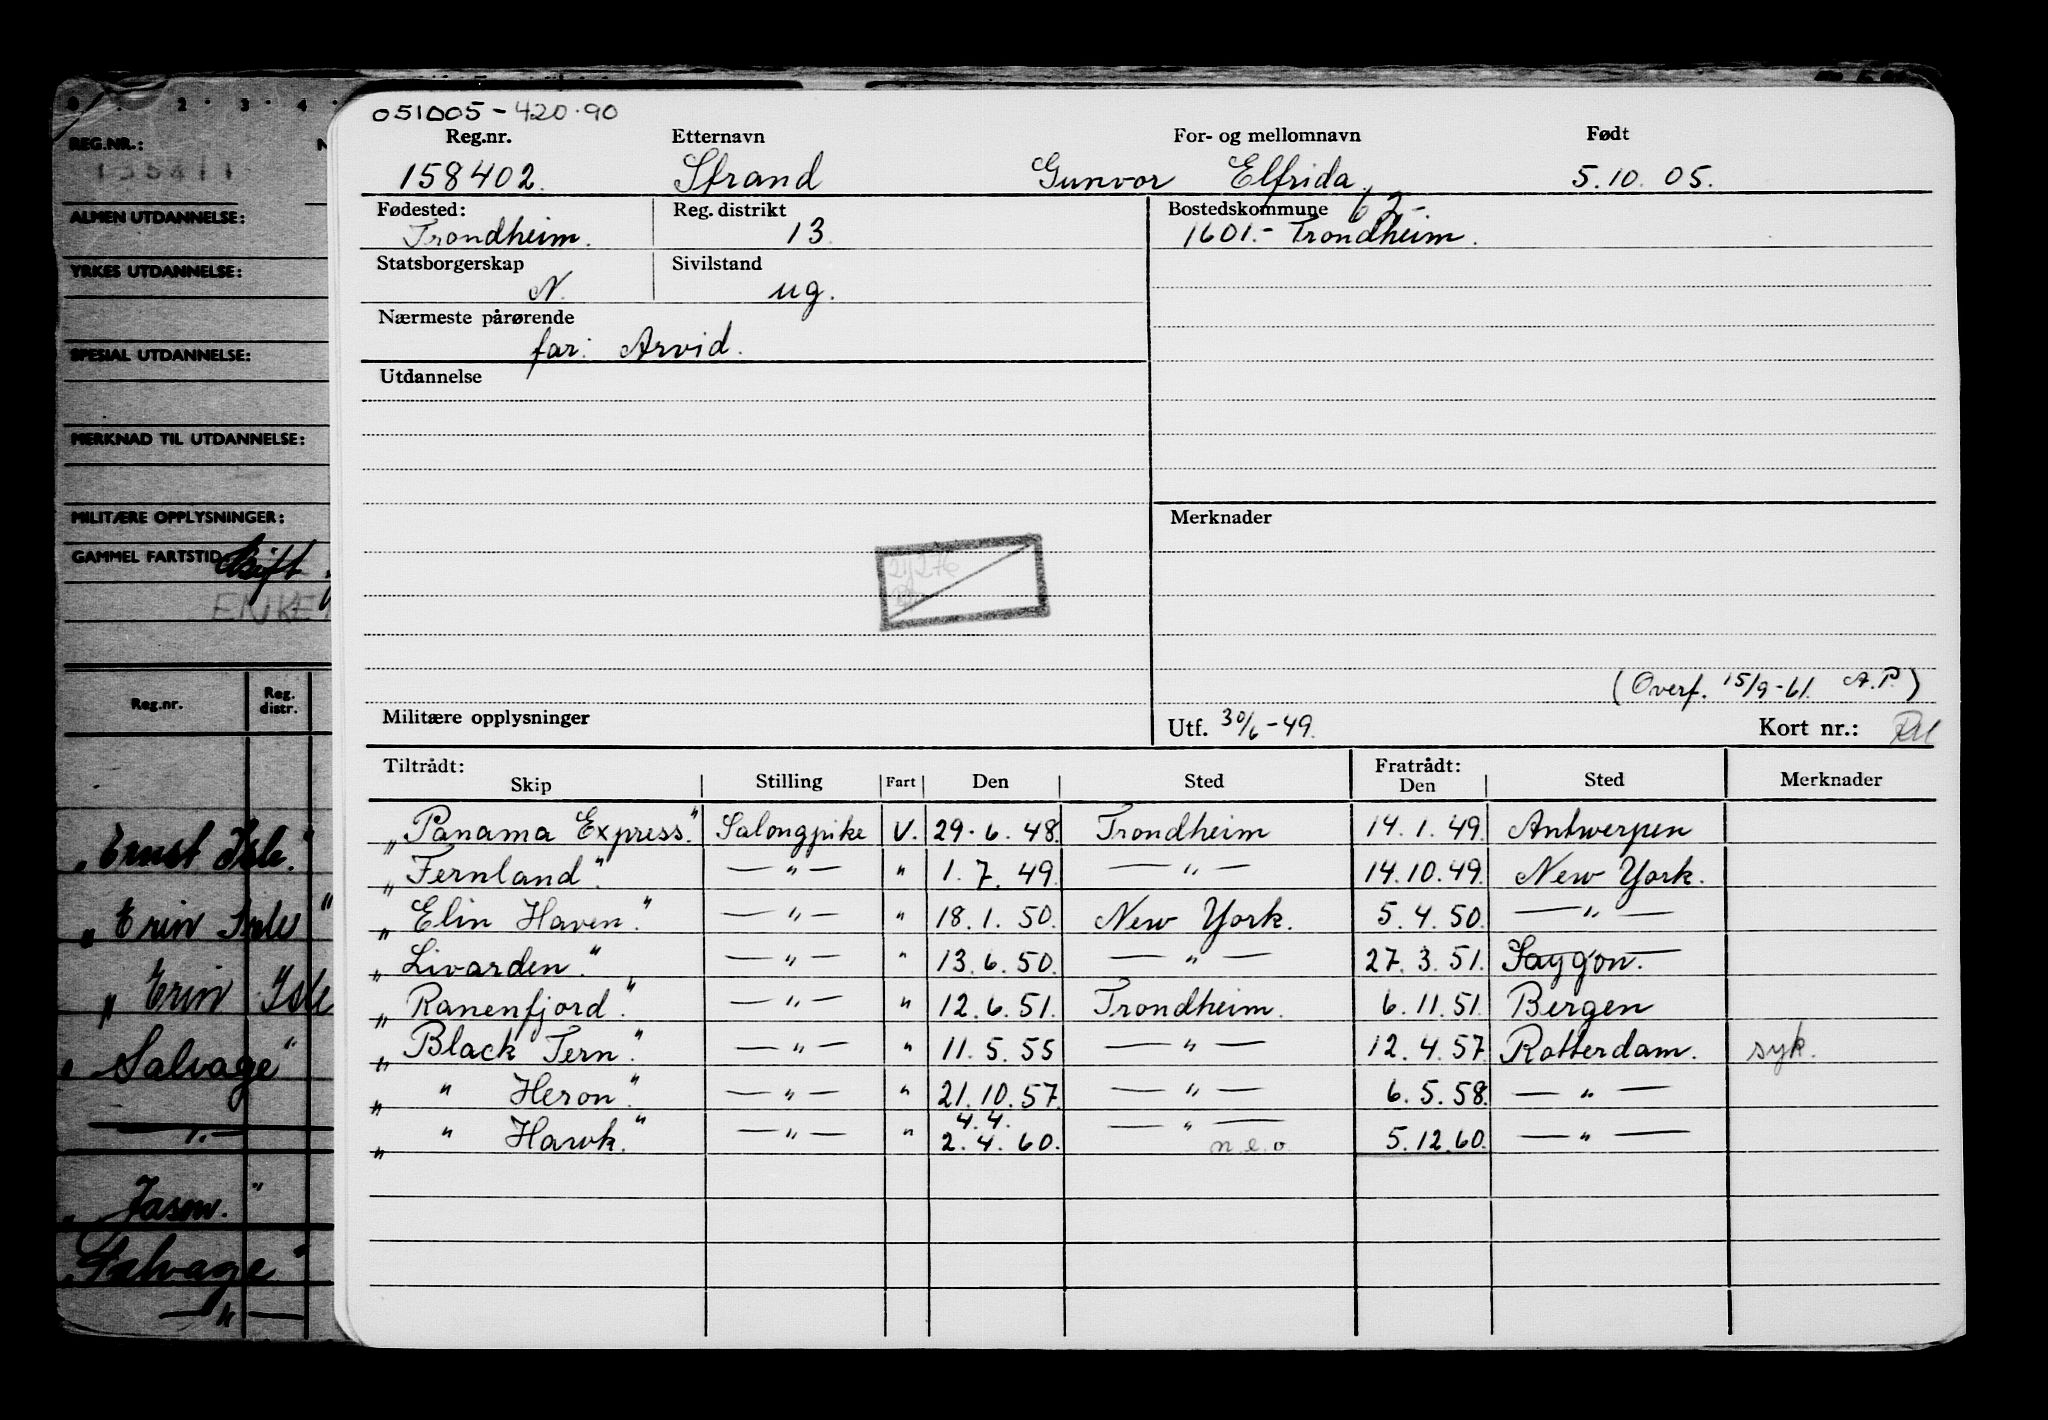 051005-420.90
Reg.nr. Etternavn For- og mellomnavn Født
158402. Strand Gunvor Elfrida, 5.10.05.
Fødested: Reg. distrikt Bostedskommune 62-
Trondheim. 13 1601.- Trondheim.
Statsborgerskap Sivilstand
N. ug.
Nærmeste pårørende
far: Arvid.
Utdannelse
Merknader
(Overf. 15/9-61. A.P.)
Militære opplysninger Utf. 30/6-49. Kort nr.:
Tiltrådt: Fratrådt:
Skip Stilling Fart Den Sted Den Sted Merknader
„Panama Express." Salongpike V. 29.6.48. Trondheim 14.1.49. Antwerpen
„Fernland." —"— " 1.7.49. —"— 14.10.49. New York.
„Elin Haven." —"— " 18.1.50. New York. 5.4.50. —"—
„Livarden." —"— " 13.6.50. —"— 27.3.51. Saygon.
„Ranenfjord." —"— " 12.6.51. Trondheim. 6.11.51. Bergen
„Black Tern." —"— " 11.5.55 —"— 12.4.57. Rotterdam. syk.
„ " Heron." —"— " 21.10.57. —"— 6.5.58. —"—
4.4.
„ " Hawk." —"— " 2.4.60. —"— n.e.o. 5.12.60. —"—
REG.NR.:
ALMEN UTDANNELSE:
YRKES UTDANNELSE:
SPESIAL UTDANNELSE:
MERKNAD TIL UTDANNELSE:
MILITÆRE OPPLYSNINGER:
GAMMEL FARTSTID
ENKE
Reg.nr. Reg. distr.
„Ernst Isle."
„Erin Isle"
„Erin Isle
„Salvage"
—"—
„Jason."
„Salvage"
—"—